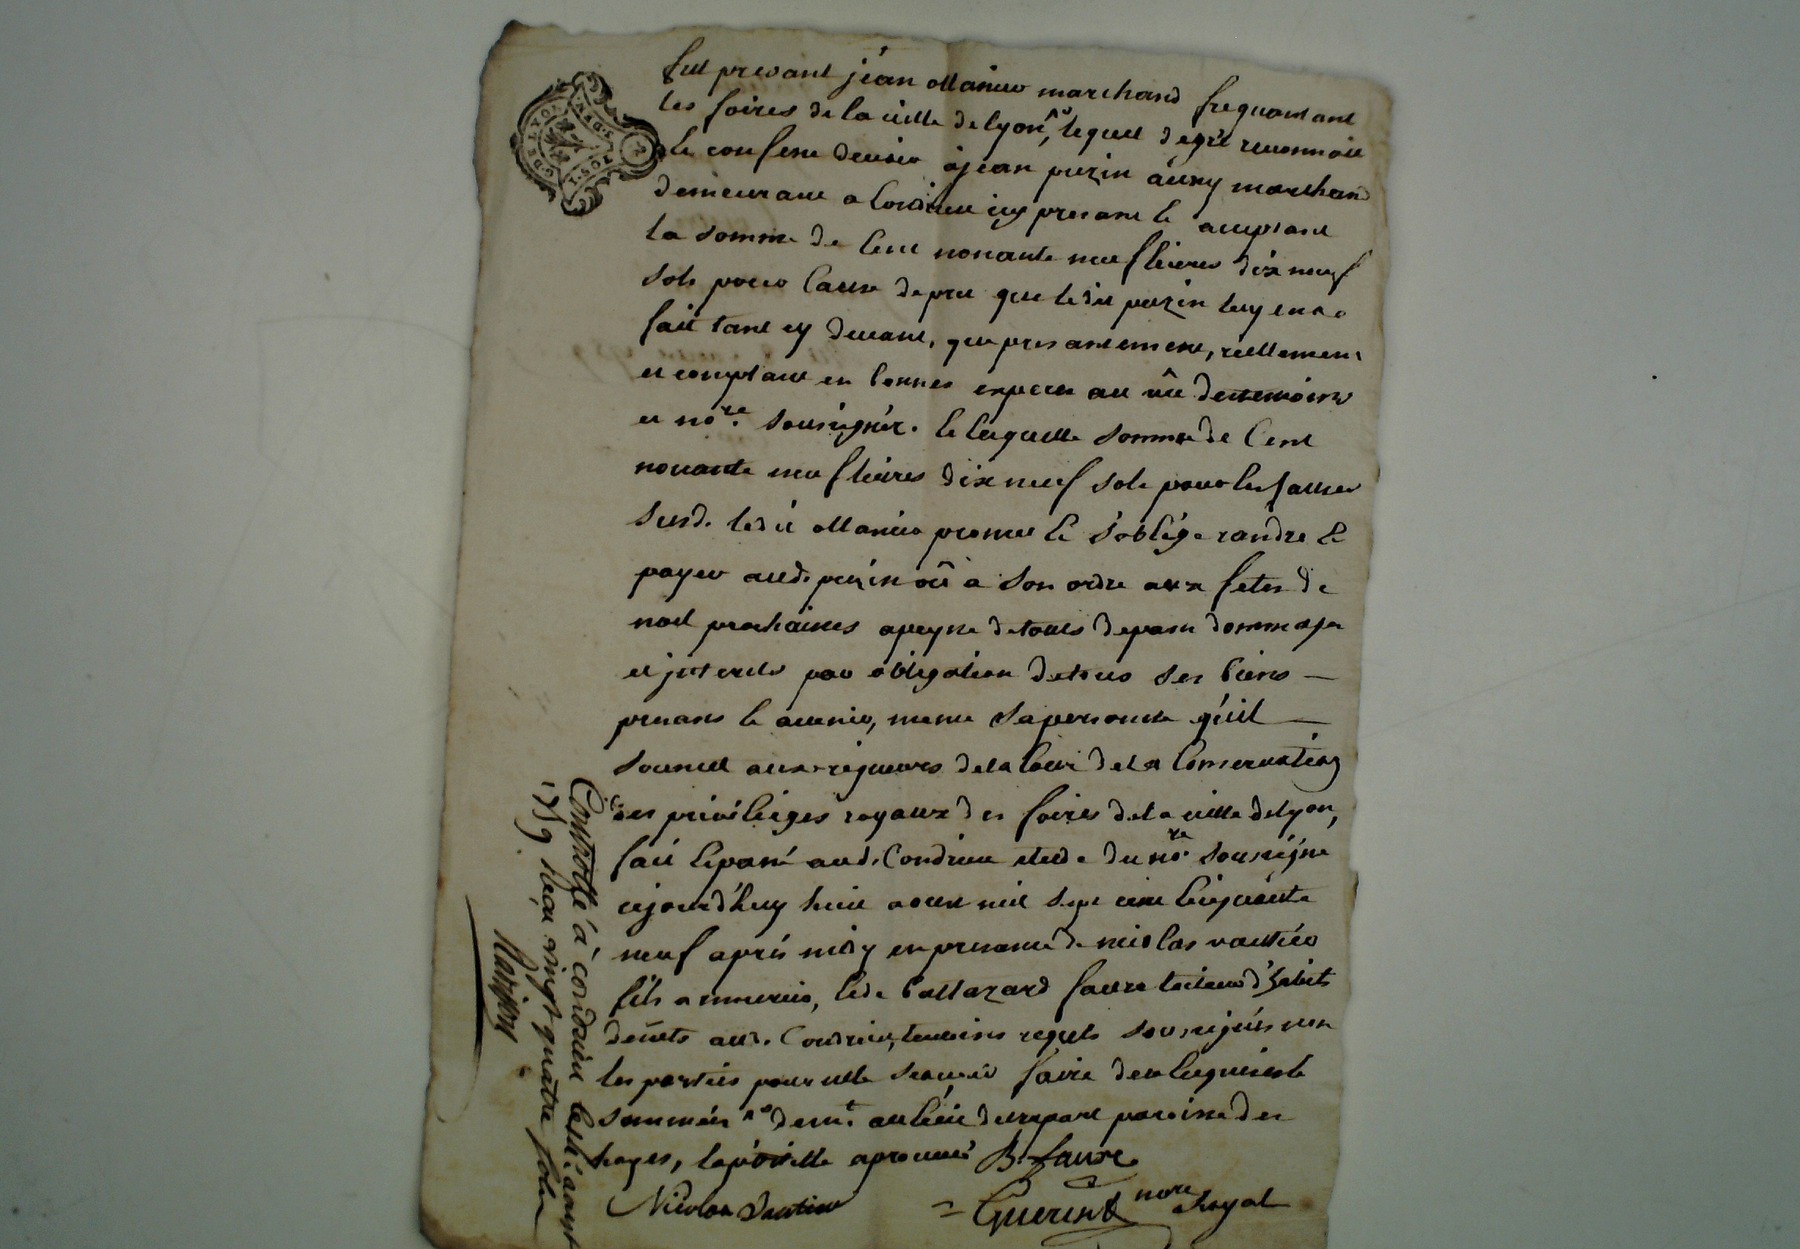 fut presant jéan ollanier marchand frequantant
les foires de la ville de lyon, lequel de gré reconnoit
& confesse devoir à jean puzin áussy marchand
demeurant a Condrieu icy present & acceptant
la somme de Cent nonante neuf livres dix neuf
sols pour Cause de pret que ledit puzin luy en a
fait tant cy devant, que presantement, reellement
et comptant en bonnes especes au vû des temoins
et no.re sousignés. & laquelle somme de Cent
nonante neuf livres dix neuf sols pour les causes
susd. ledit ollanier promet & s'oblige randre &
payer aud. puzin oû a son ordre aux fetes de
noel prochaines apeyne de touts depans dommages
et jnterets par obligation de tous ses biens —
presans & avenir, meme sa personne qu'il —
soumet aux rigueurs de la Cour de la Conservation
des priviléiges royaux des foires de la ville de lyon,
fait & passé aud. Condrieu etude du no.re sousigne
cejourd'huy huit aoust mil sept cent Cinquante
neuf aprés midy en presance de nicolas vautier
fils a murier, & de baltazard faure tailleur d'habits
demts aud. Condrieu, temoins requis sousignés non
les parties pour ne le scavoir faire de ce enquis &
sommées demt. au lieu de paroisse des
hayes, approuvé B. faure
Nicolas Vautier Guerin nore Royal
Controllé à condrieu le dit aout
1759 Reçu vingt quatre sols